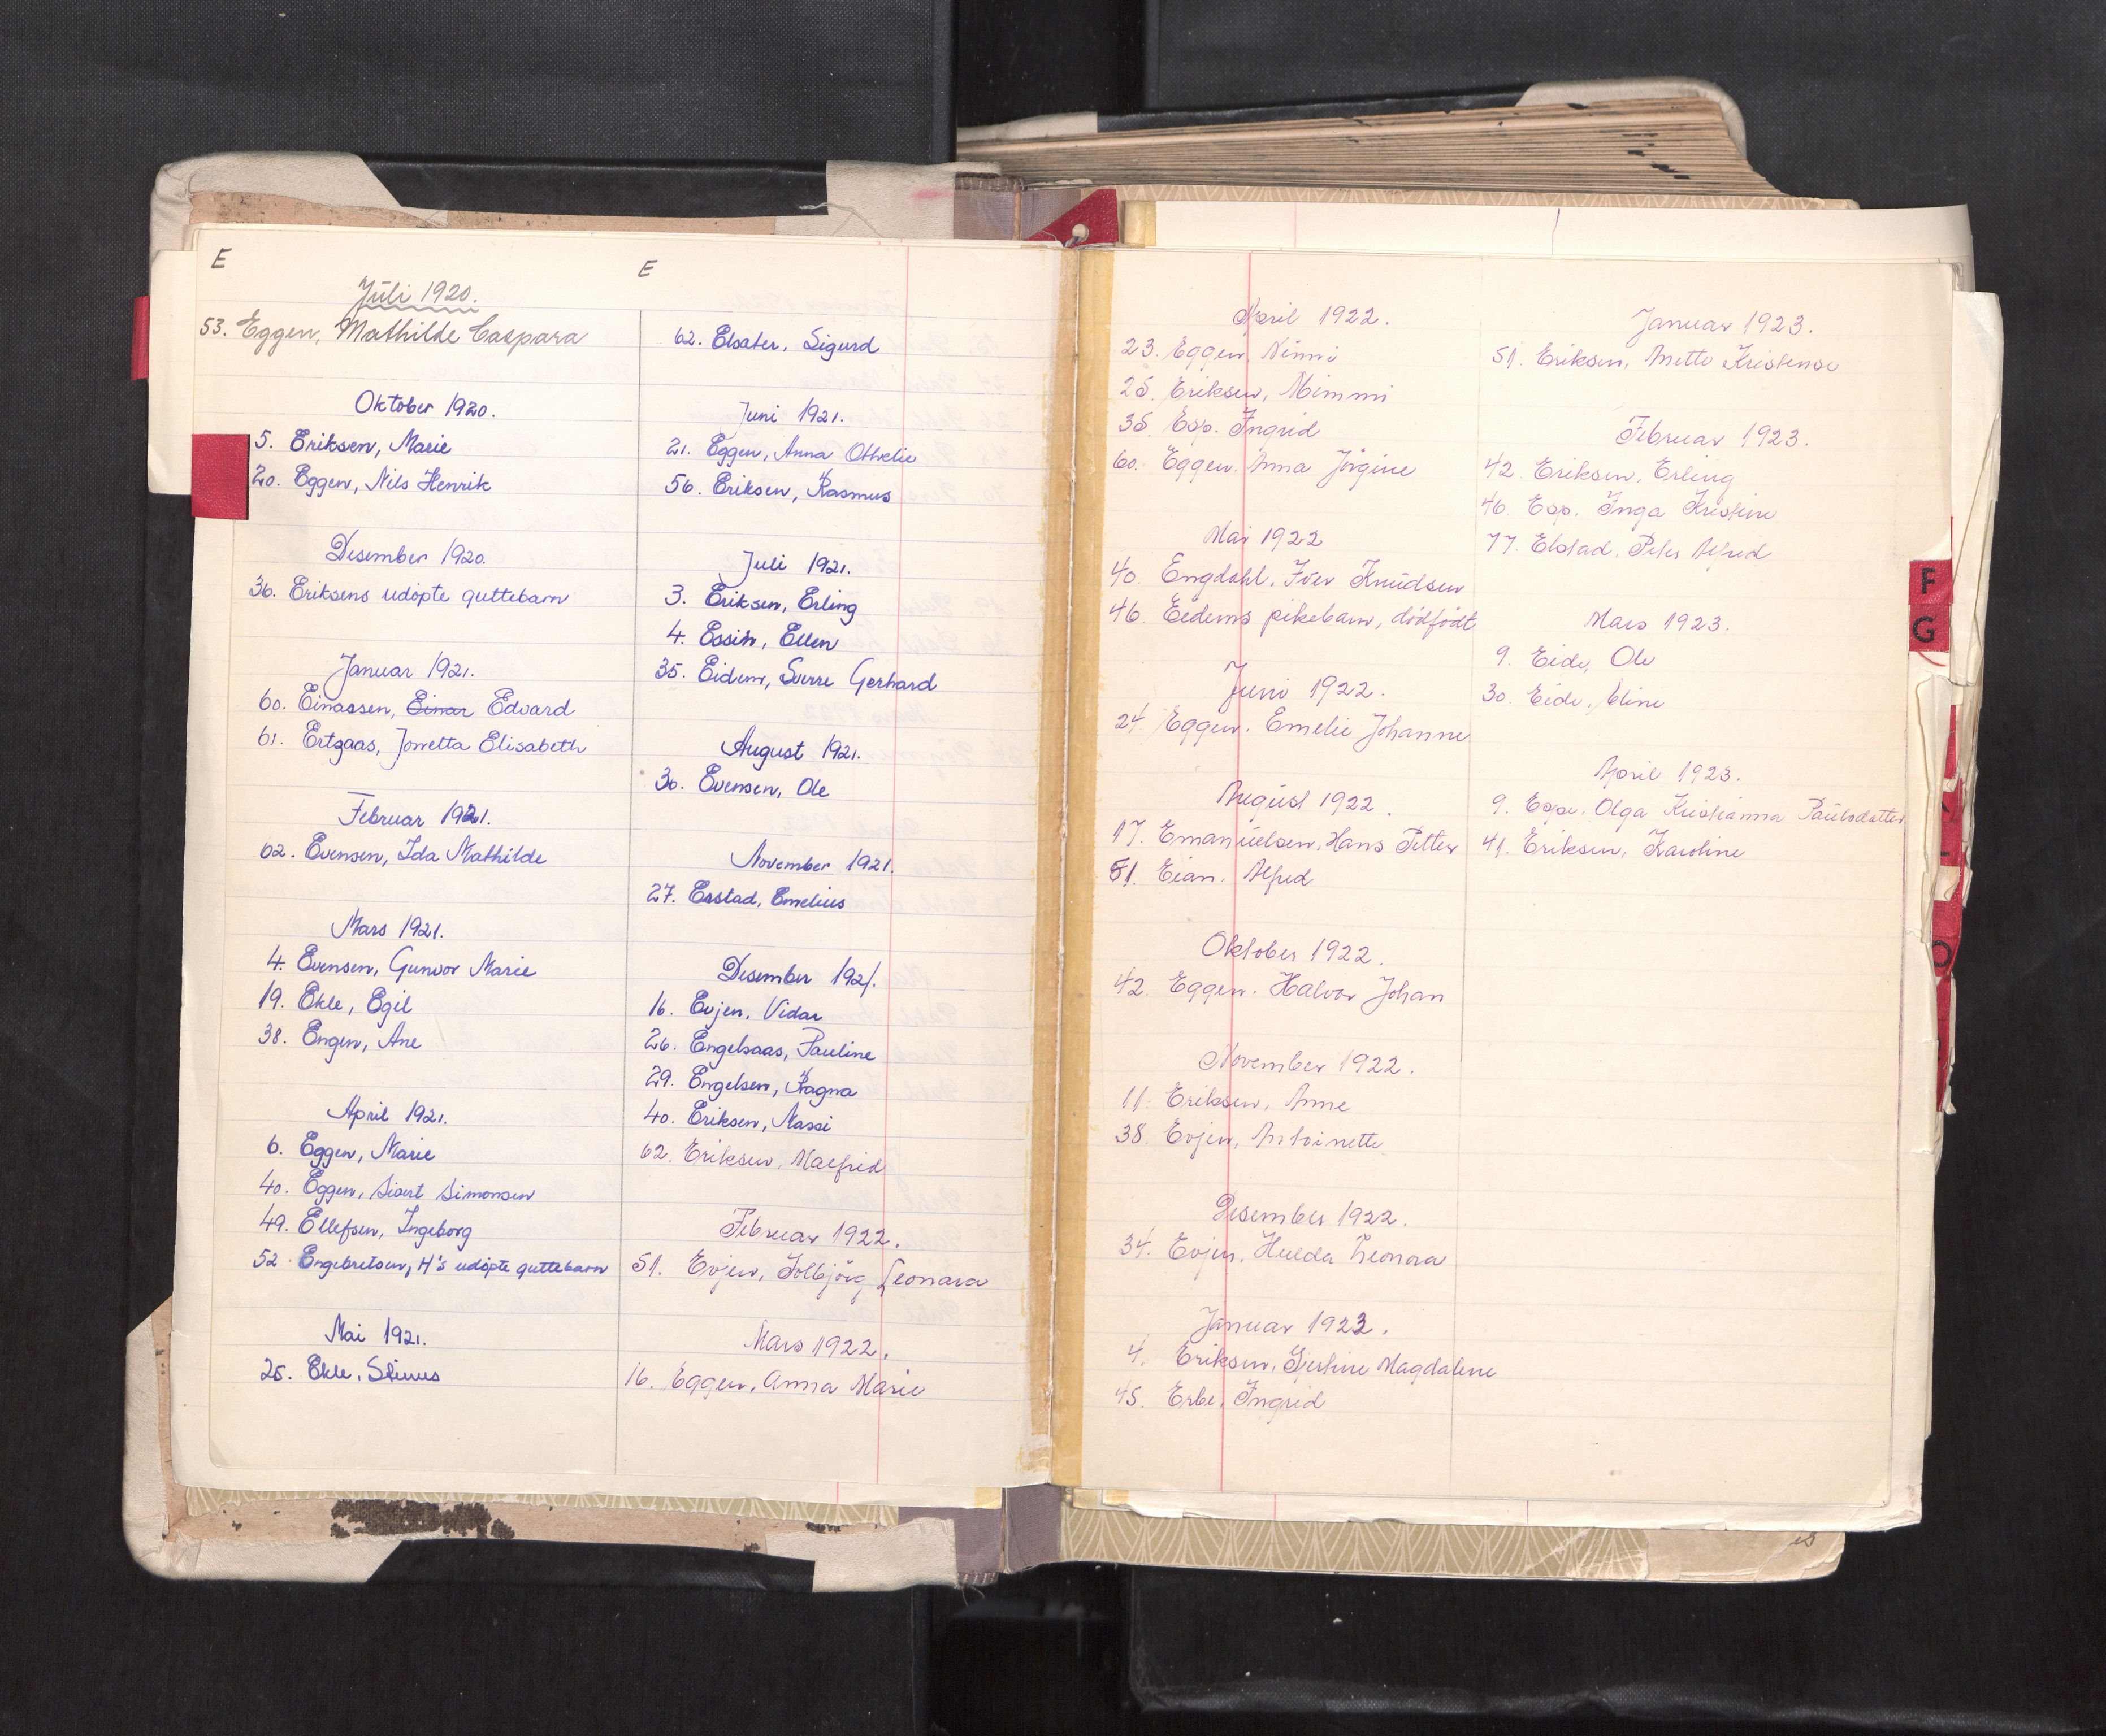 E
Juli 1920.
53. Eggen, Mathilde Caspara
Oktober 1920.
5. Eriksen, Marie
20. Eggen, Nils Henrik
Desember 1920.
36. Eriksens udöpte guttebarn
Januar 1921.
60. Einassen, Einar Edvard
61. Ertzaas, Jonetta Elisabeth
Februar 1921.
62. Evensen, Ida Mathilde
Mars 1921.
4. Evensen, Gunvor Marie
19. Ekle, Egil
38. Engen, Ane
April 1921.
6. Eggen, Marie
40. Eggen, Sivert Simonsen
49. Ellefsen, Ingeborg
52. Engebretsen, H's udöpte guttebarn
Mai 1921.
25. Ekle, Stinus
E
62. Elsater, Sigurd
Juni 1921.
21. Eggen, Anna Othelie
56. Eriksen, Rasmus
Juli 1921.
3. Eriksen, Erling
4. Essin, Ellen
35. Eidem, Sverre Gerhard
August 1921.
30. Evensen, Ole
November 1921.
27. Erstad, Emelius
Desember 1921.
16. Evjen, Vidar
26. Engelsaas, Pauline
29. Engelsen, Ragna
40. Eriksen, Nassi
62. Eriksen, Malfrid
Februar 1922.
51. Evjen, Solbjörg Leonara
Mars 1922.
16. Eggen, Anna Marie
April 1922.
23. Eggen, Nimmi
25. Eriksen, Mimmi
35. Esp. Ingrid
60. Eggen. Anna Jörgine
Mai 1922
40. Engdahl. Iver Knudsen
46. Eidems pikebarn, dödfödt
Juni 1922.
24. Eggen. Emelie Johanne
August 1922.
17. Emanuelsen, Hans Petter
51. Eian. Alfred
Oktober 1922.
42. Eggen. Halvor Johan
November 1922.
11. Eriksen, Anne
38. Evjen, Antoinette
Desember 1922.
34. Evjen. Hulda Leonora
Januar 1923.
4. Eriksen, Gjertine Magdalene
45. Erbe, Ingrid
Januar 1923.
51. Eriksen, Mette Kristense
Februar 1923.
42. Eriksen, Erling
46. Esp. Inga Kristine
77. Elstad. Peter Alfred
Mars 1923.
9. Eide, Ole
30. Eide, Eline
April 1923.
9. Espe. Olga Kristianna Paulsdatter
41. Eriksen, Karoline
F
G
O